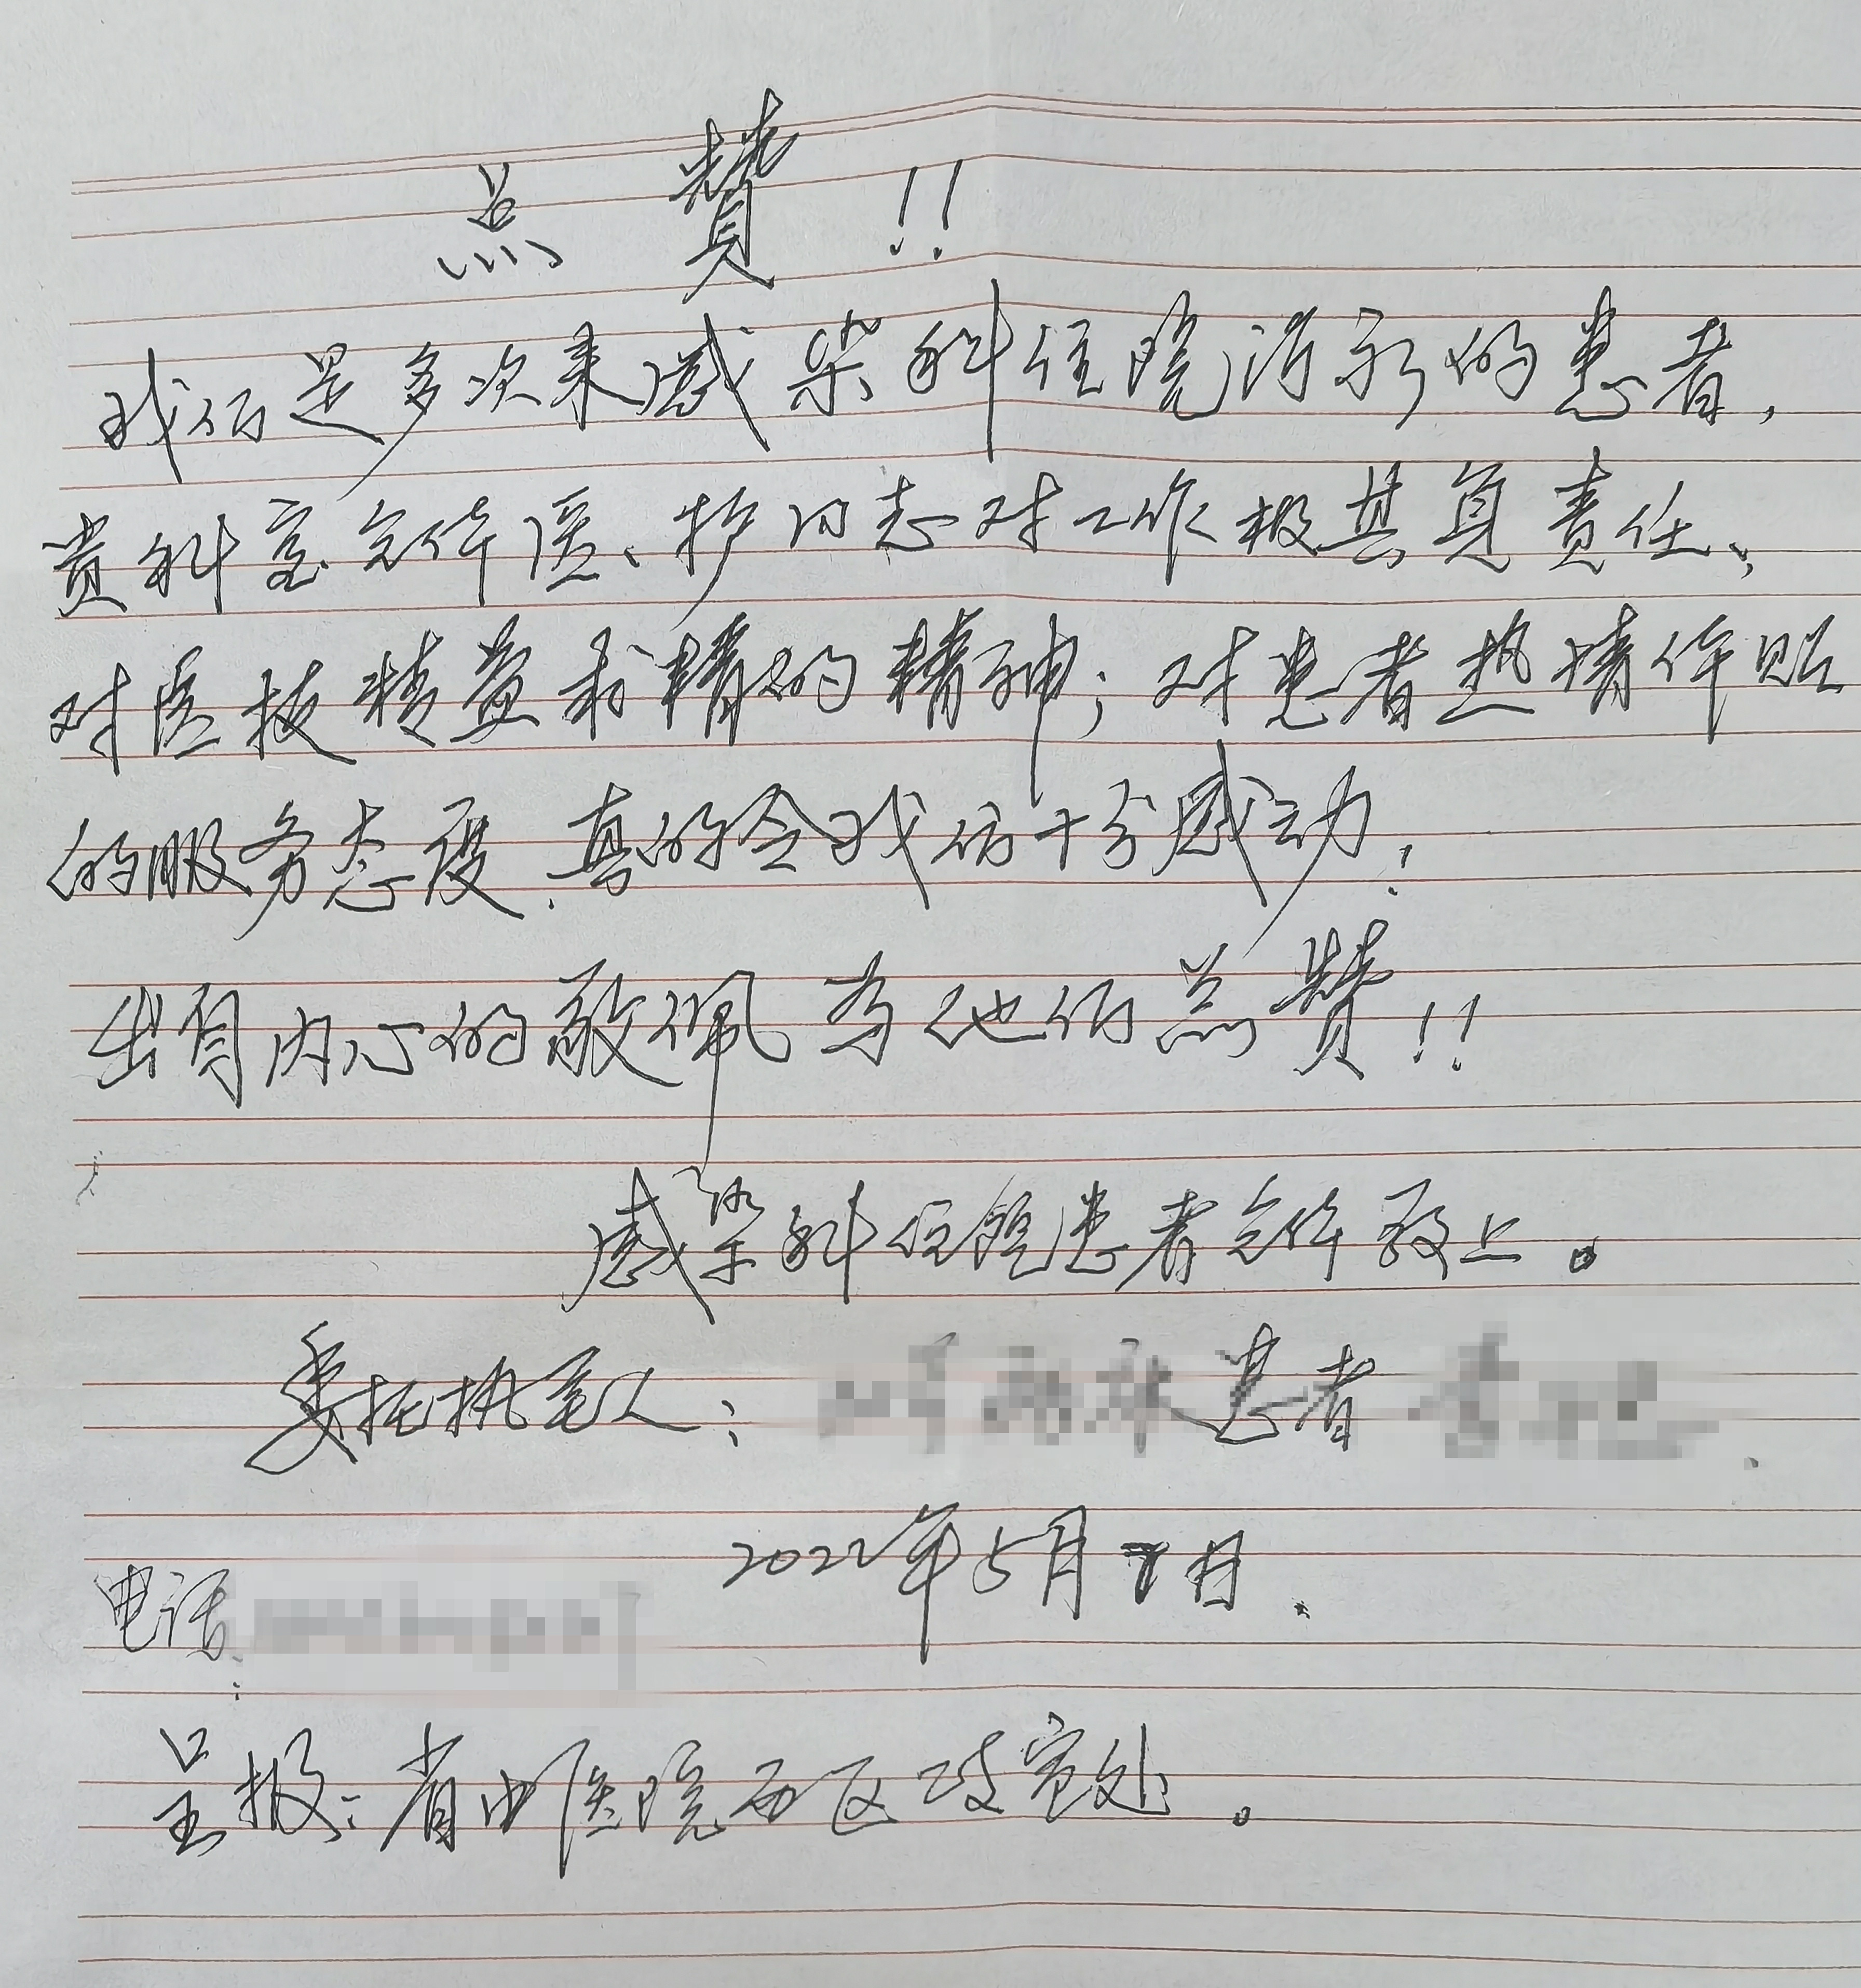 点赞!!
我们是多次来感染科住院治疗的患者,
贵科室全体医、护同志对工作极其负责任、
对医技精益求精的精神;对患者热情体贴
的服务态度.真的令我们十分感动!
出自内心的敬佩为他们点赞!!
感染科住院患者全体敬上。
委托执笔人: 患者
2022年5月7日.
电话:
呈报:省中医院西区政宣处。